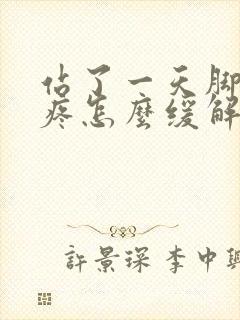 站了一天脚
疼怎麼缓解
許景琛 李中興